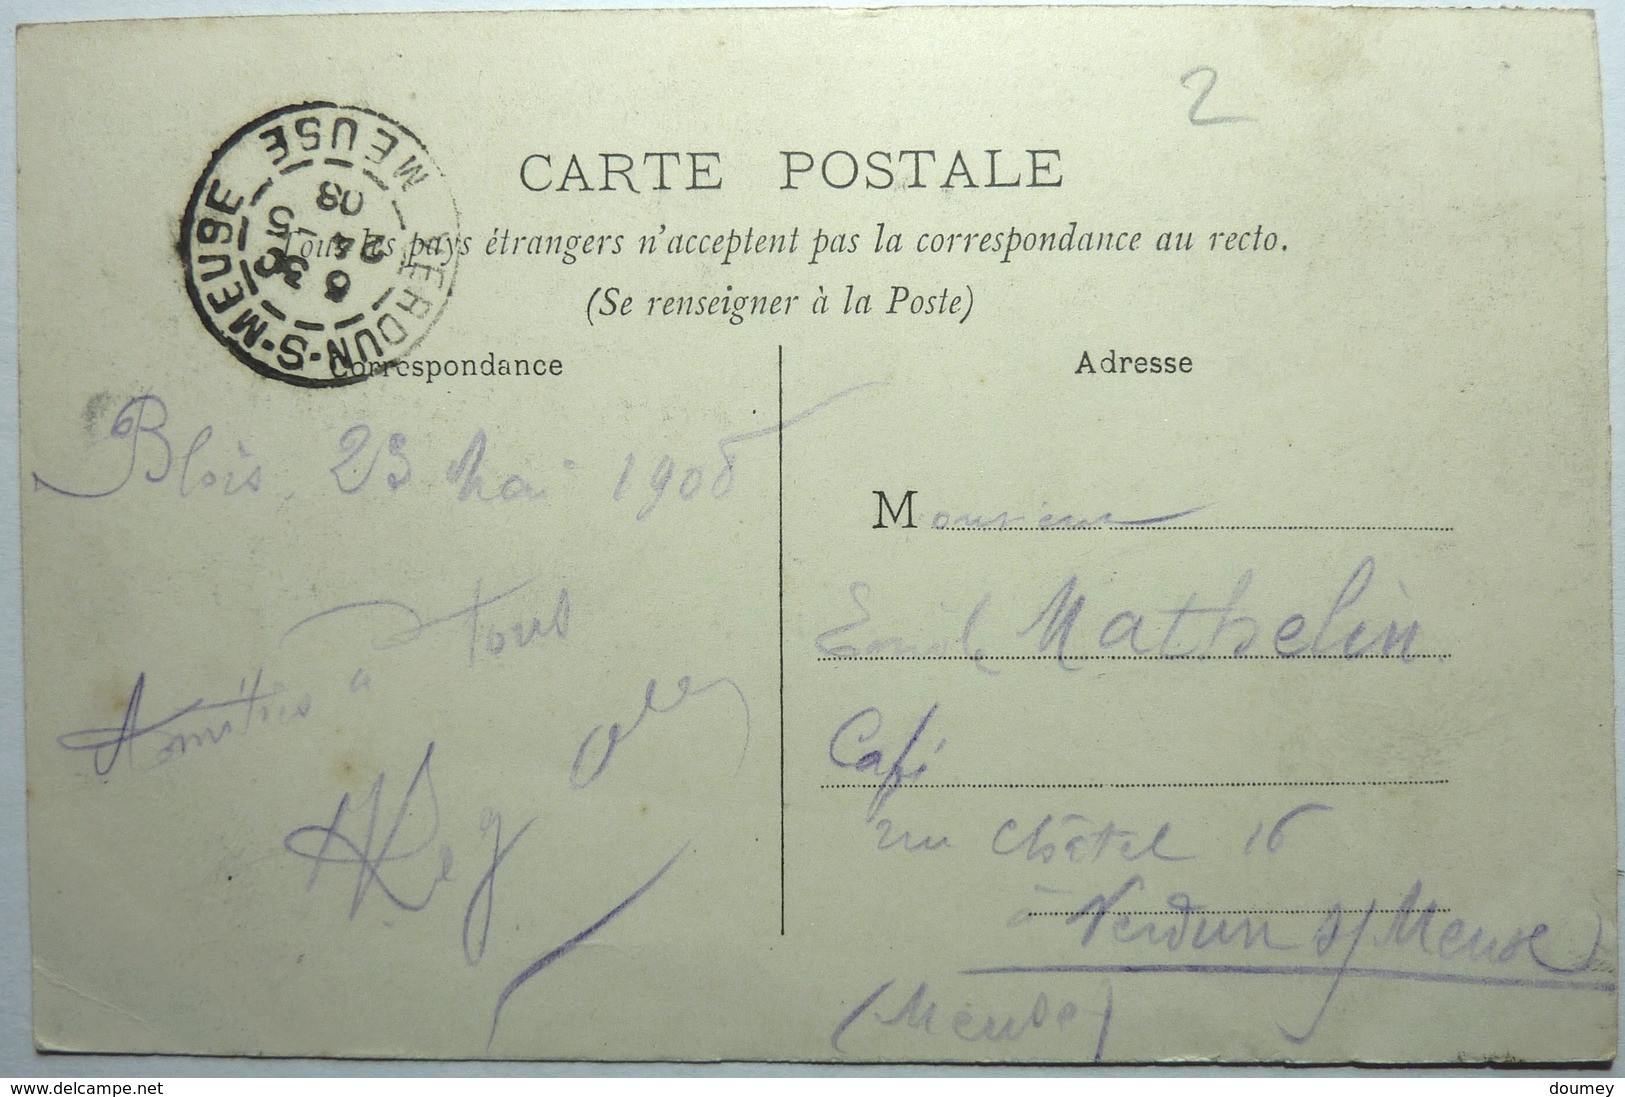 2
CARTE POSTALE
Tous les pays étrangers n'acceptent pas la correspondance au recto.
(Se renseigner à la Poste)
VERDUN-S-MEUSE
MEUSE
6 30
24 5
08
Correspondance
Blois, 23 Mai 1908
Amitiés à tous
Adresse
Monsieur
Emile Mathelin
Café
rue Châtel 16
à Verdun s/ Meuse
(Meuse)
www.delcampe.net
doumey